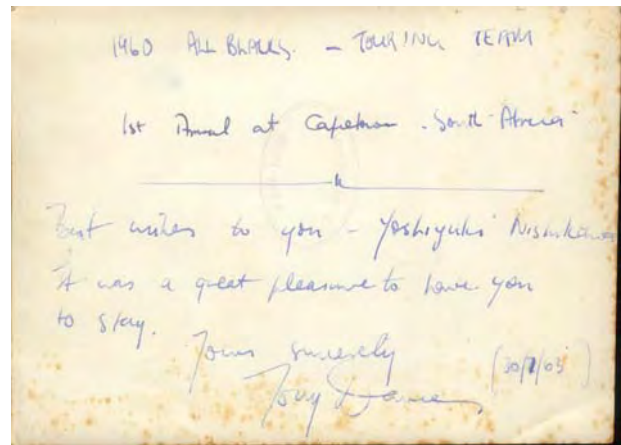 1960 ALL BLACKS - TOURING TEAM
1st Arrival at Capetown. South Africa
Best wishes to you - Yoshiyuki Nishikawa
It was a great pleasure to have you
to stay.
Yours sincerely
Tony Davies